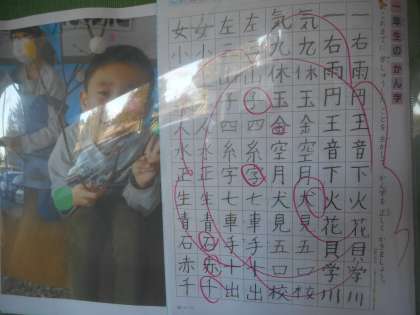 一年生のかん字
一右雨円王音下火花貝学川
一右雨円王音下火花貝学川
気九休玉金空月犬見五口校
気九休玉金空月犬見五口校
左三山子四糸字七車手十出
左三山子四糸字七車手十出
女小人水正生青石赤千
女小人水正生青石赤千